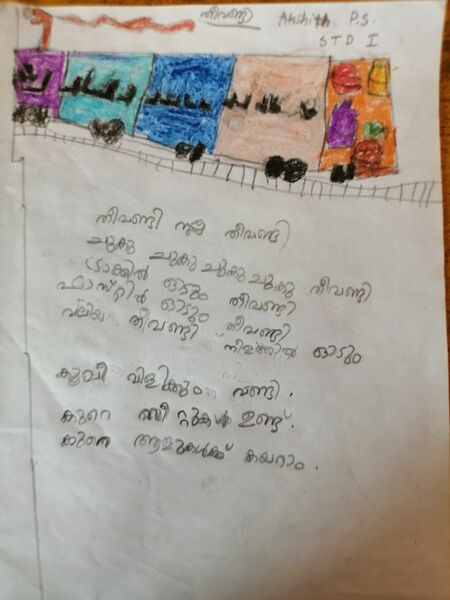 തീവണ്ടി Akshith P.S.
STD I
തീവണ്ടി നല്ല തീവണ്ടി
ചുകു ചുകു ചുകു ചുകു തീവണ്ടി
ട്രാക്കിൽ ഓടും തീവണ്ടി
ഫാസ്റ്റിൽ ഓടും തീവണ്ടി
വലിയ തീവണ്ടി നീളത്തിൽ ഓടും
കൂവി വിളിക്കും വണ്ടി.
കുറെ സീറ്റുകൾ ഉണ്ട്.
കുറെ ആളുകൾക്ക് കയറാം.